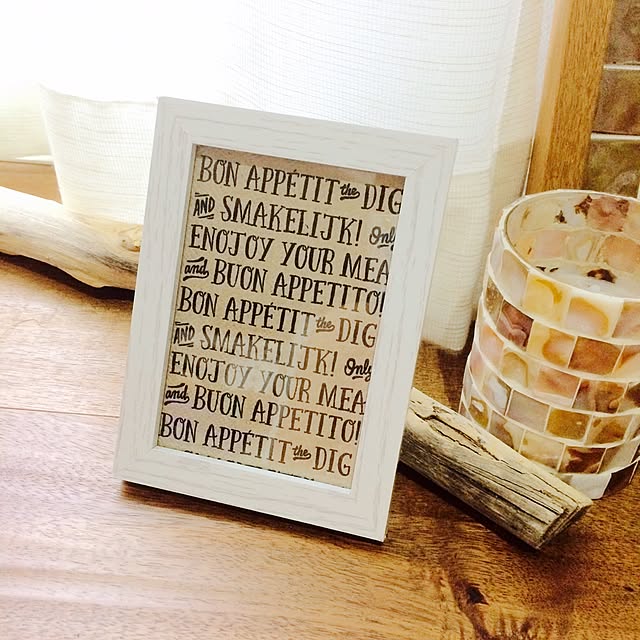 BON APPÉTIT the DIG
AND SMAKELIJK! Only
ENOJOY YOUR MEA
and BUON APPETITO!
BON APPÉTIT the DIG
AND SMAKELIJK! Only
ENOJOY YOUR MEA
and BUON APPETITO!
BON APPÉTIT the DIG